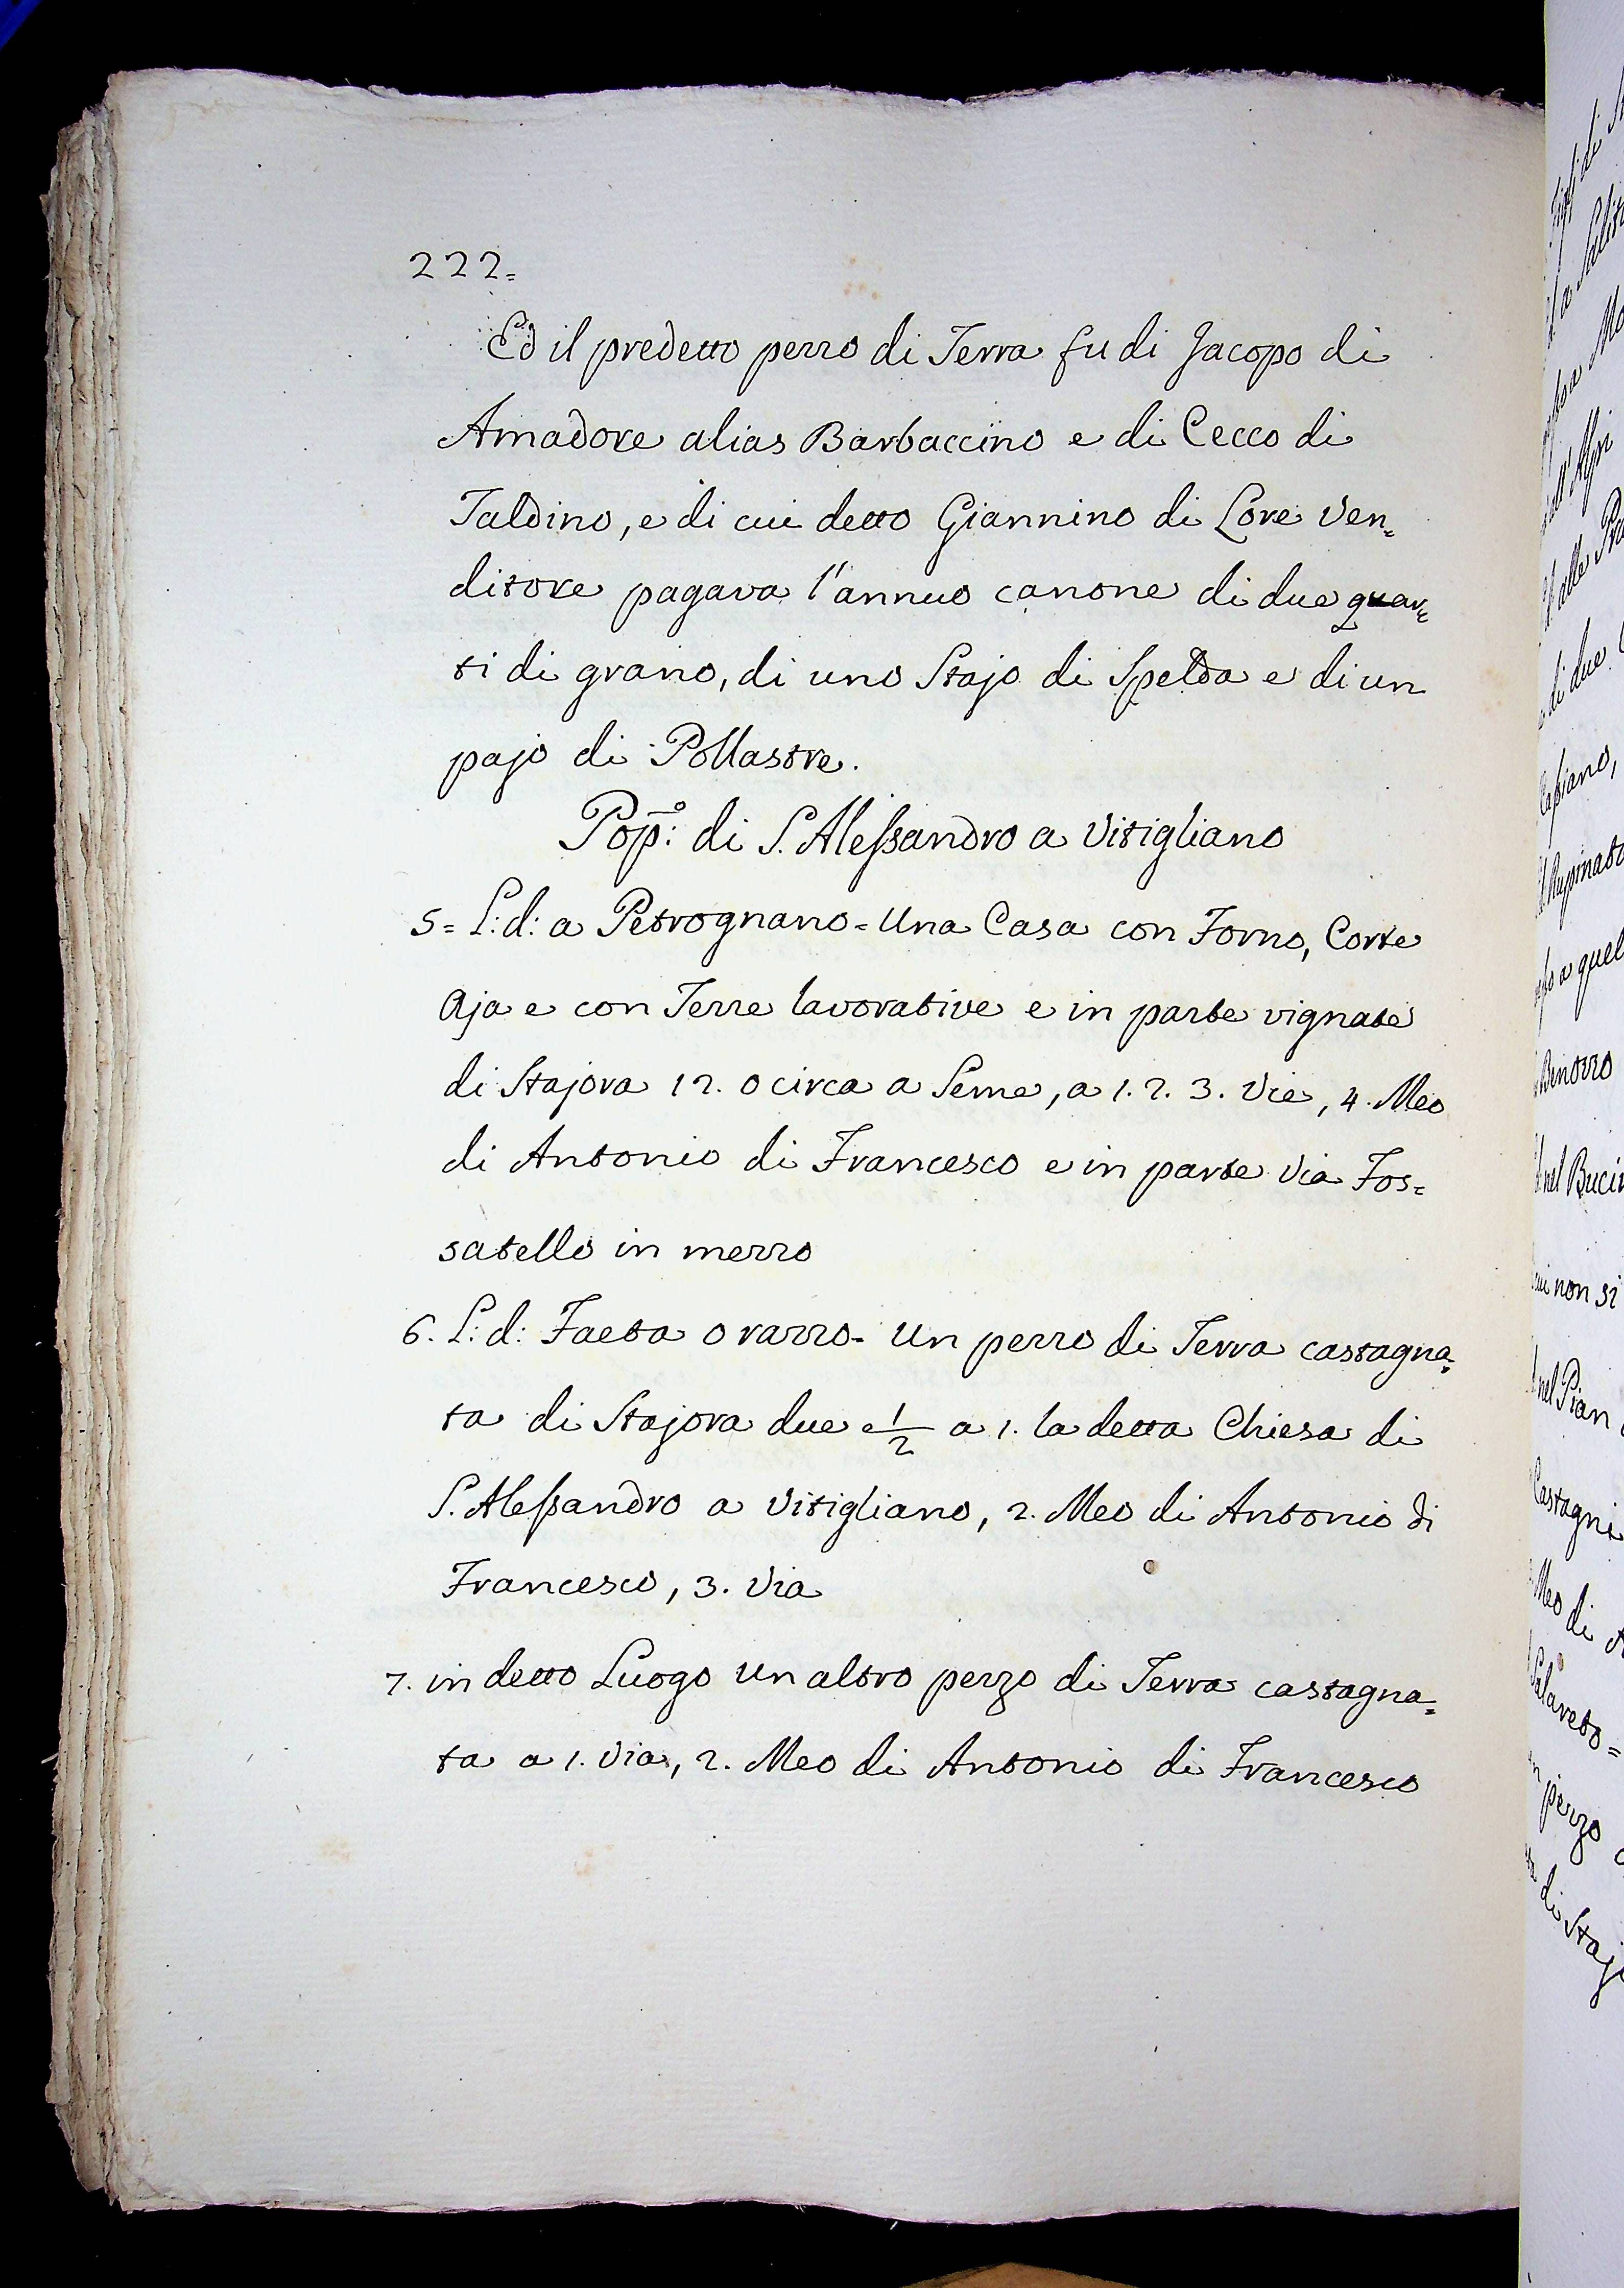 222=
Ed il predetto pezzo di Terra fu di Jacopo di
Amadore alias Barbaccino e di Cecco di
Taldino, e di cui detto Giannino di Lore Ven=
ditore pagava l'annuo canone di due quar=
ti di grano, di uno Stajo di Spelda e di un
pajo di Pollastre.
Pop.º: di S. Alessandro a Vitigliano
5= L: d: a Petrognano = Una Casa con Forno, Corte
Aja e con Terre lavorative e in parte vignate
di Stajora 12. o circa a Seme, a 1. 2. 3. Vie, 4. Meo
di Antonio di Francesco e in parte Via Fos=
satello in mezzo
6. L: d: Faeta o razzo - Un pezzo di Terra castagna=
ta di Stajora due e 1/2 a 1. la detta Chiesa di
S. Alessandro a Vitigliano, 2. Meo di Antonio di
Francesco, 3. Via
7. in detto Luogo un altro pezzo di Terra castagna=
ta a 1. Via, 2. Meo di Antonio di Francesco
di due
nel
cui non si
nel Pian
Castagni
Meo di
pezzo
di Staj